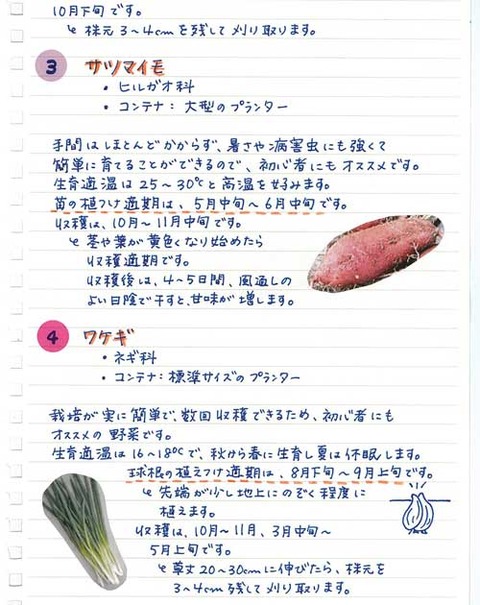 10月下旬です。
↳ 株元3〜4cmを残して刈り取ります。
3 サツマイモ
・ヒルガオ科
・コンテナ：大型のプランター
手間はほとんどかからず、暑さや病害虫にも強くて
簡単に育てることができるので、初心者にもオススメです。
生育適温は25〜30℃と高温を好みます。
苗の植えつけ適期は、5月中旬〜6月中旬です。
収穫は、10月〜11月中旬です。
↳ 茎や葉が黄色くなり始めたら
収穫適期です。
収穫後は、4〜5日間、風通しの
よい日陰で干すと、甘味が増します。
4 ワケギ
・ネギ科
・コンテナ：標準サイズのプランター
栽培が実に簡単で、数回収穫できるため、初心者にも
オススメの野菜です。
生育適温は16〜18℃で、秋から春に生育し夏は休眠します。
球根の植えつけ適期は、8月下旬〜9月上旬です。
↳ 先端が少し地上にのぞく程度に
植えます。
収穫は、10月〜11月、3月中旬〜
5月上旬です。
↳ 草丈20〜30cmに伸びたら、株元を
3〜4cm残して刈り取ります。